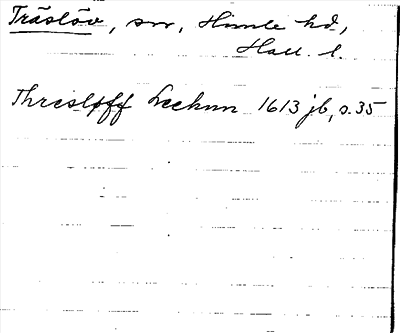 Träslöv, sn, Himle hd,
Hall. l.
Thresløff Socknn 1613 jb, s. 35